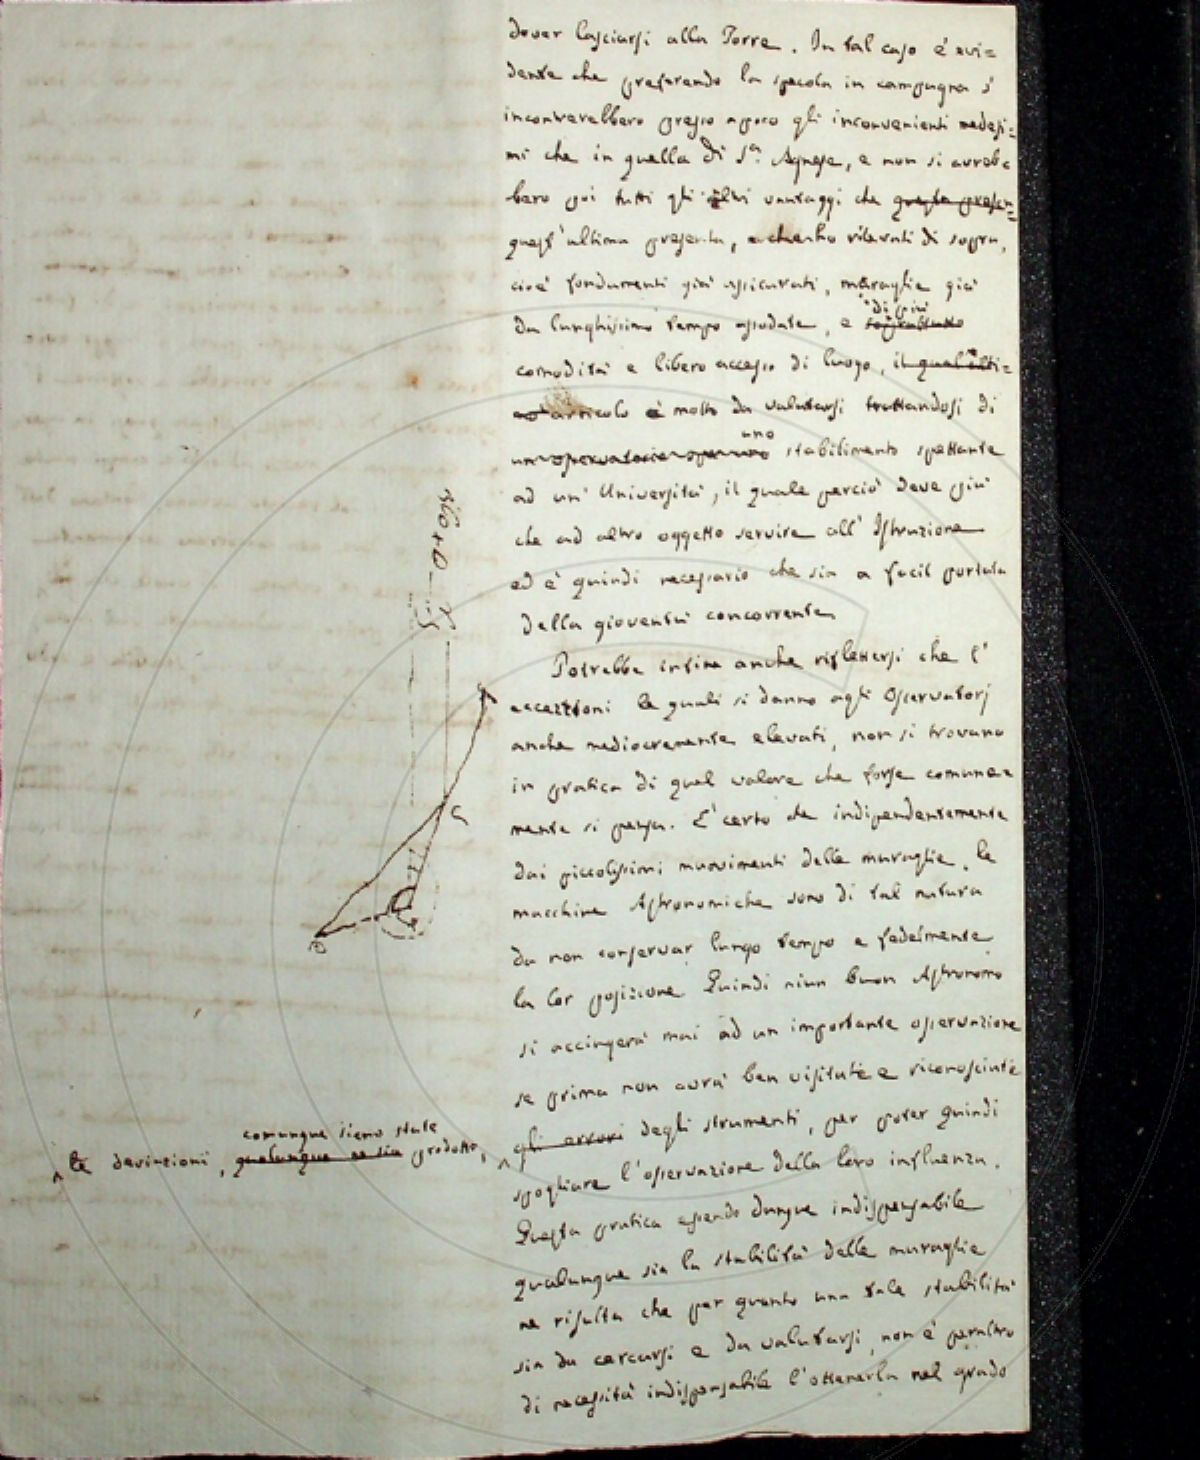 dover lasciarsi alla Torre. In tal caso è evi=
dente che preferendo la specola in campagna s'
incontrerebbero presso a poco gli inconvenienti medesi=
mi che in quella di S.ª Agnese, e non si avreb=
bero poi tutti gli altri vantaggi che questa presen=
quest'ultima presenta, e rilevati di sopra,
cioè fondamenti già assicurati, muraglie già
di più
da lunghissimo tempo assodate, e soprattutto
comodità e libero accesso di luogo, il qual ulti=
mo articolo è molto da valutarsi trattandosi di
uno
un osservatorio stabilimento spettante
ad un' Università, il quale perciò deve più
che ad altro oggetto servire all' Istruzione
ed è quindi necessario che sia a facil portata
della gioventù concorrente
Potrebbe infine anche riflettersi che l'
eccezzioni le quali si danno agli Osservatorj
anche mediocremente elevati, non si trovano
in pratica di quel valore che forse comune=
mente si pensa. È certo che indipendentemente
dai piccolissimi movimenti delle muraglie, le
macchine Astronomiche sono di tal natura
da non conservar lungo tempo e fedelmente
la lor posizione Quindi niun buon Astronomo
si accingerà mai ad un importante osservazione
se prima non avrà ben visitate e riconosciute
gli errori degli strumenti, per poter quindi
spogliare l'osservazione della loro influenza.
Questa pratica essendo dunque indispensabile
qualunque sia la stabilità delle muraglie
ne risulta che per quanto una tale stabilità
sia da cercarsi e da valutarsi, non è peraltro
di necessità indispensabile l'ottenerla nel grado
comunque sieno state
le deviazioni, qualunque ne sia prodotte,
C